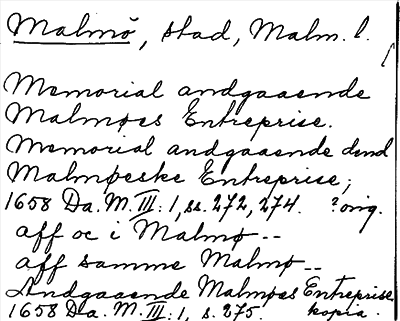 Malmö, stad, Malm. l.
Memorial andgaaende
Malmøes Entreprise.
Memorial andgaaende dend
Malmøeske Entreprise;
1658 Da. M. III: 1, ss. 272, 274. ? orig.
aff oc i Malmø --
aff samme Malmø --
Andgaaende Malmøes Entreprise.
1658 Da. M. III: 1, s. 275. kopia.